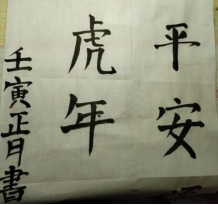 平安
虎年
壬寅正月書